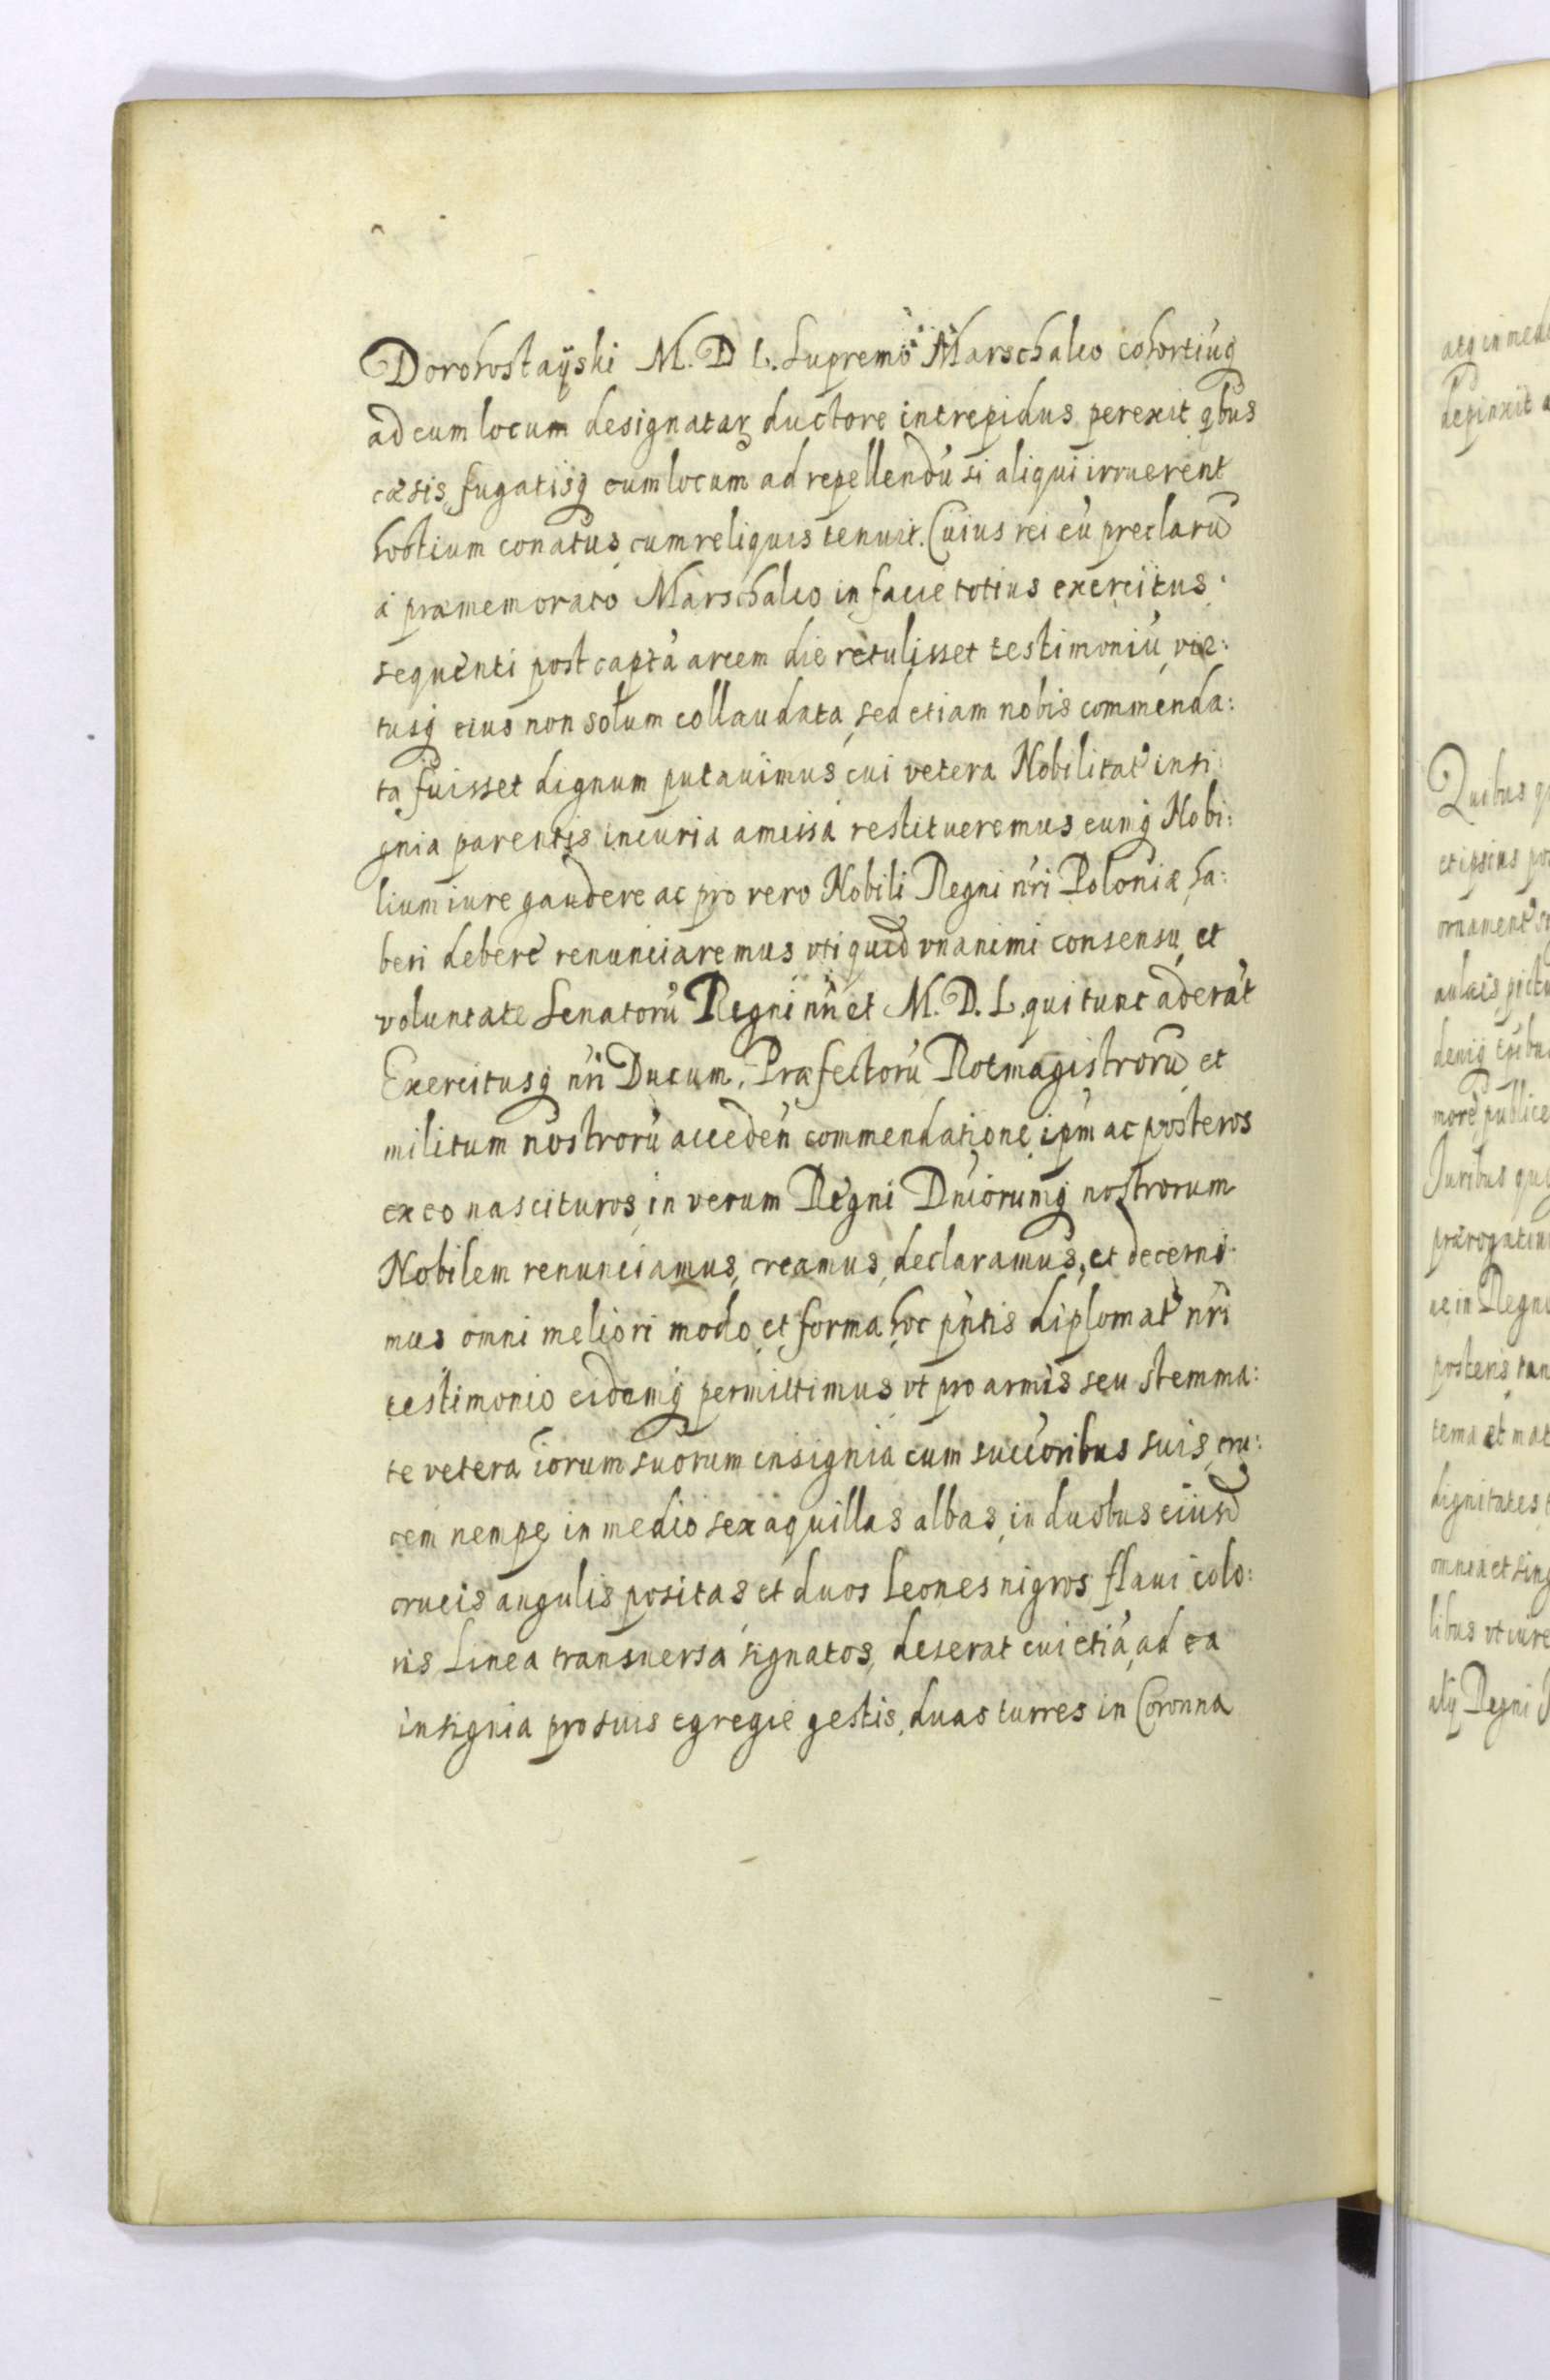 Dorohostayski M. D L. Supremo Marschalco cohortiuq
ad eum locum designataꝝ ductore intrepidus perexit qbus
cæsis fugatisq eum locum ad repellendū si aliqui irruerent
hostium conatus cum reliquis tenuit. Cuius rei cū preclarū
á præmemorato Marschalco in facie totius exercitus
sequenti post captā arcem die retulisset testimoniū, vir:
tusq eius non solum collaudata, sed etiam nobis commenda:
ta fuisset dignum putauimus cui vetera Nobilitat insi:
gnia parentis incuria amissa restitueremus eumq Nobi:
lium iure gaudere ac pro vero Nobili Regni nri Poloniæ ha:
beri debere renunciaremus vti quid vnanimi consensu et
voluntate Senatorū Regni nri et M. D. L. qui tunc aderāt
Exercitusq nri Ducum, Præfectorū Rotmagistrorū et
militum nostrorū acceden commendatione ipm ac posteros
ex eo nascituros in verum Regni Dniorumq nostrorum
Nobilem renunciamus, creamus, declaramus, et decerni:
mus omni meliori modo et forma hoc pntis diplomat nri
testimonio eidemq permittimus vt pro armis seu stemma:
te vetera iorum suorum insignia cum succoribus suis, cru:
cem nempe in medio sex aquillas albas in duobus eiusd
crucis angulis positas et duos Leones nigros flaui colo:
ris Linea transuersa signatos, deserat cui etiā ad ea
insignia pro suis egregie gestis, duas turres in Coronna
atq in med
depinxit a
Quibus
et ipsius po
ornament
aulæis pictu
deniq
more publice
Juribus
prærogatiu
ce in Regn
posteris tan
dignitates
omnia et sing
libus vt iure
Regni